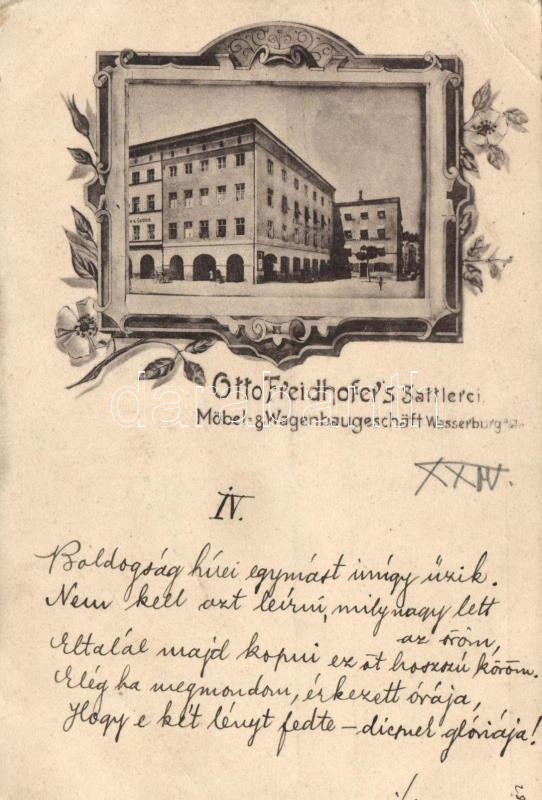 Otto Freidhofer's Sattlerei,
Möbel- & Wagenbaugeschäft Wasserburg a/Inn
darabanth
XXIV.
IV.
Boldogság hírei egymást imígy űzik.
Nem kell azt leírni, mily nagy lett
az öröm,
Eltalál majd kopni ez öt hosszú köröm.
Elég ha megmondom, érkezett órája,
Hogy e két lényt fedte – dicsnek glóriája!